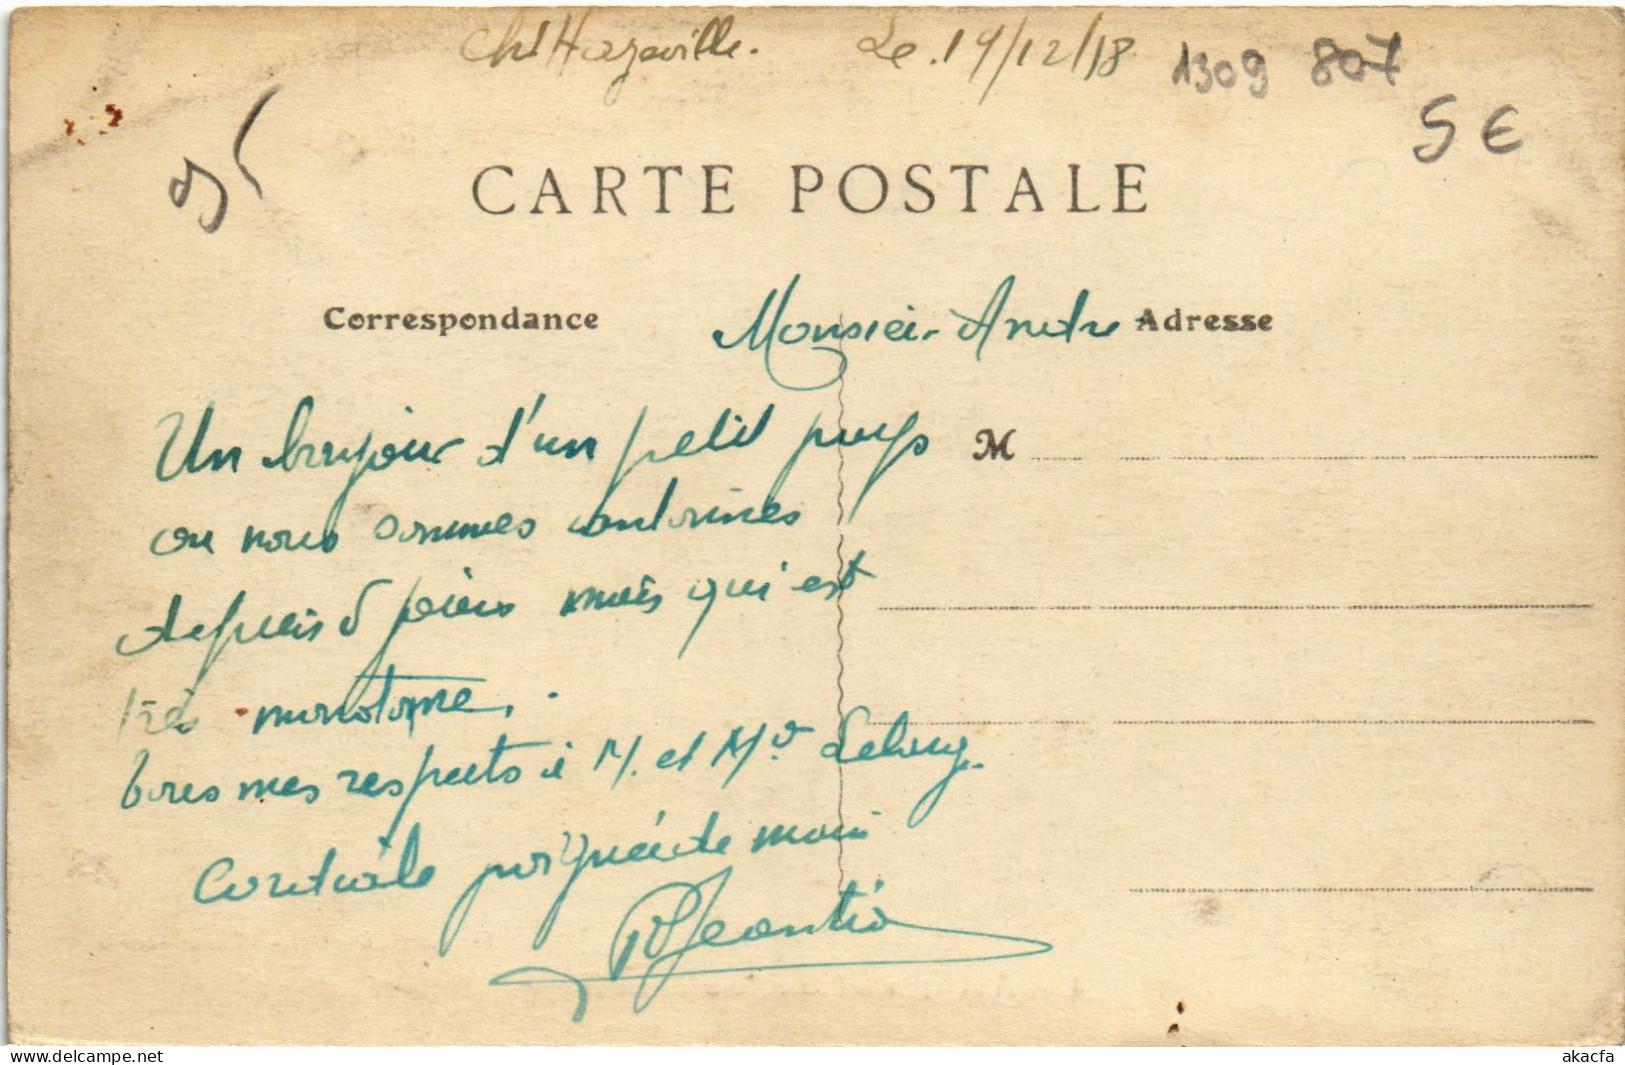 Le 19/12/18
1309 807
5 €
95
CARTE POSTALE
Correspondance
Adresse
Monsieur Andre
M
Un bonjour d'un petit pays
ou nous sommes cantonnes
depuis 5 jours mais qui est
très monotone.
Bons mes respects à M. et Me
Cordiale poignée de main
delcampe.net
akacfa